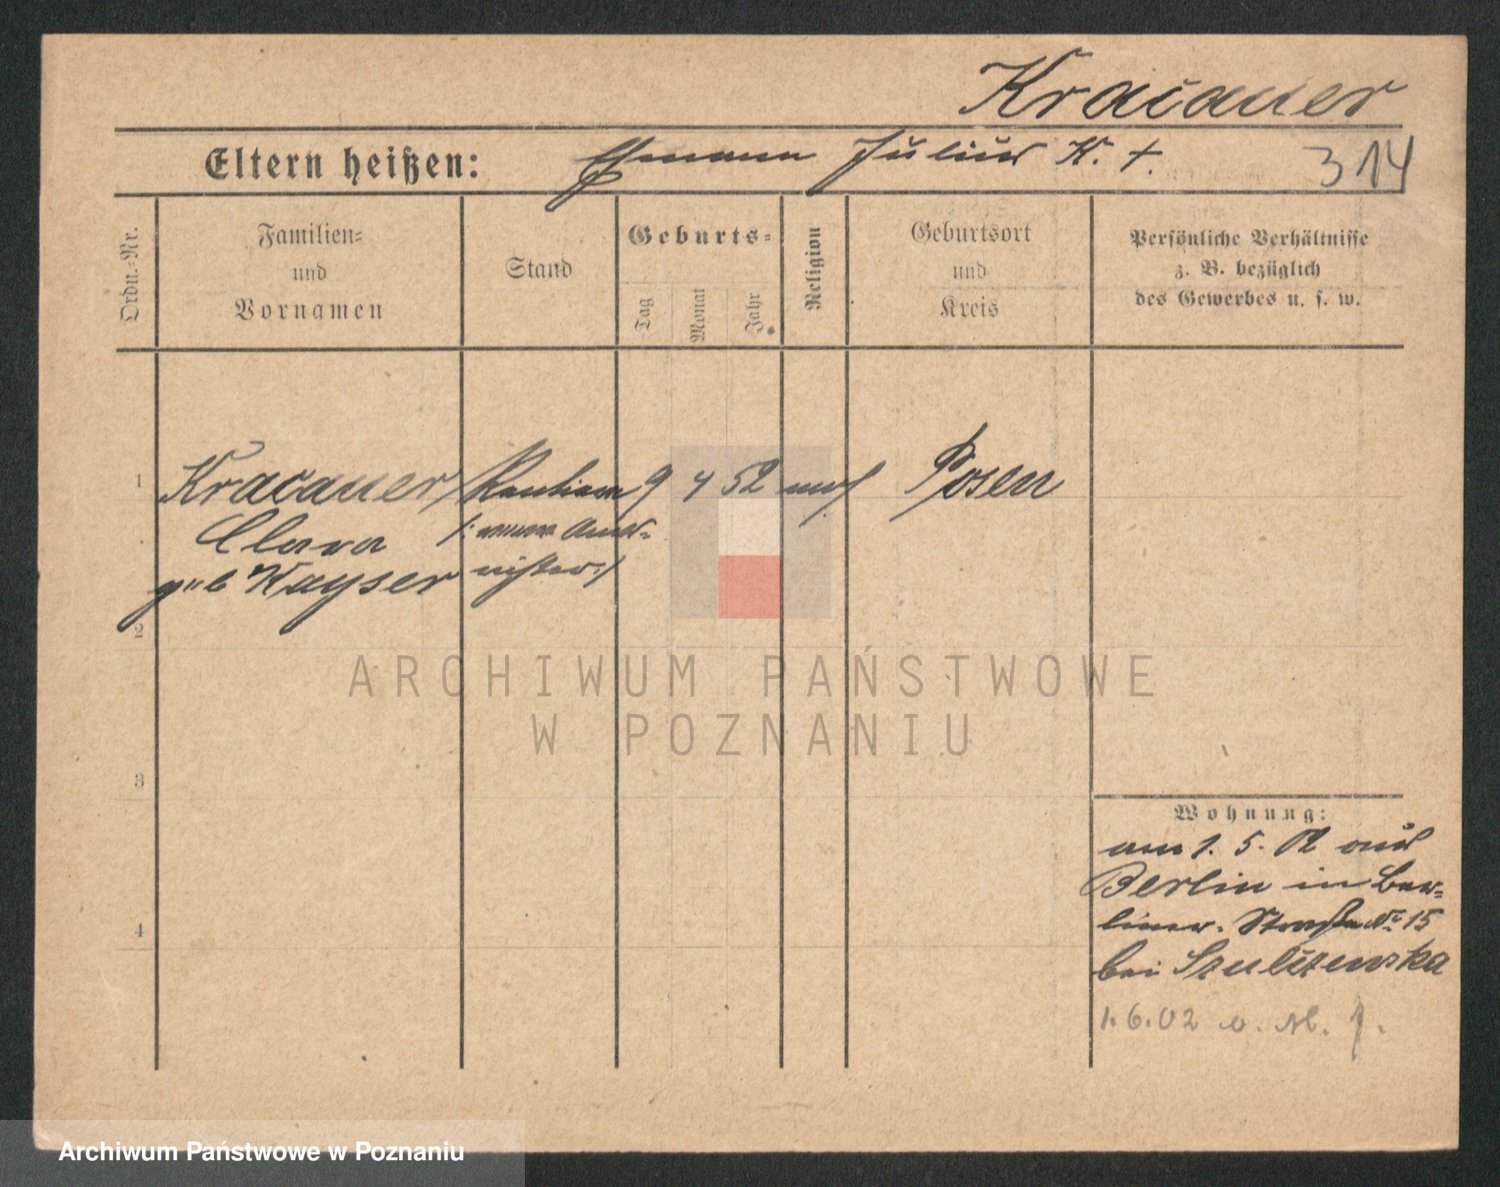 Kracauer
Eltern heißen: Ehmann Julius K. †.
314
Ordn.-Nr.
Familien-
und
Vornamen
Stand
Geburts-
Tag
Monat
Jahr
Religion
Geburtsort
und
Kreis
Persönliche Verhältnisse
z. B. bezüglich
des Gewerbes u. s. w.
1
Kracauer
Clara
geb Kayser
9 4 52
mos
Posen
2
3
4
ARCHIWUM PAŃSTWOWE
W POZNANIU
Wohnung:
am 1. 5. 02 aus
Berlin in Ber-
liner. Straße No 15
bei
1.6.02
Archiwum Państwowe w Poznaniu